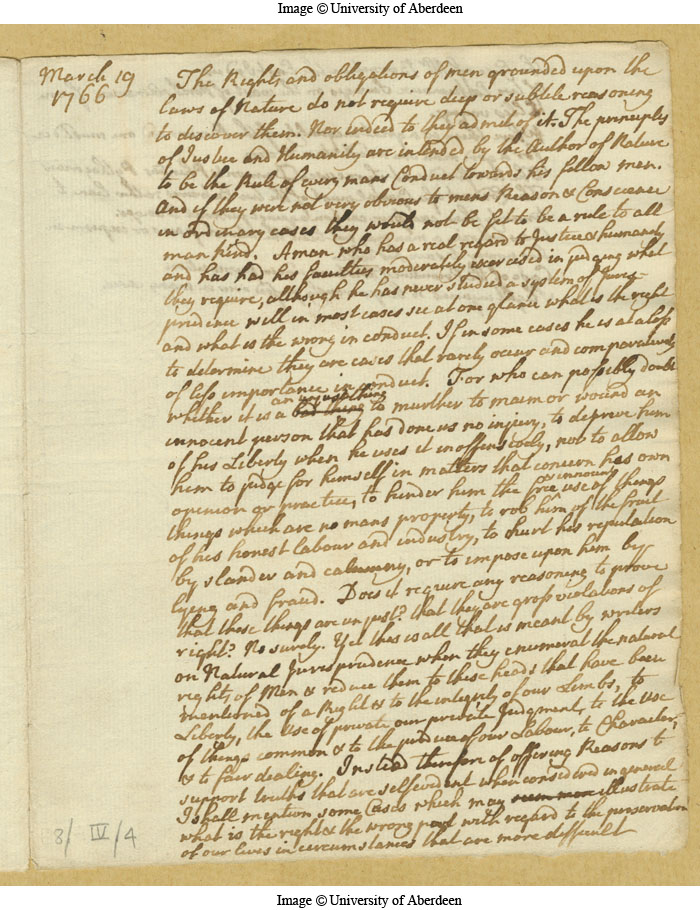 Image © University of Aberdeen
March 19
1766
The Rights and obligations of men grounded upon the
laws of Nature do not require deep or subtile reasoning
to discover them. Nor indeed to they admit of it. The principles
of Justice and Humanity are intended by the Author of Nature
to be the Rule of every mans Conduct towards his fellow men.
And if they were not very obvious to mens Reason & Conscience
in ordinary cases they would not be fit to be a rule to all
mankind. A man who has a real regard to Justice & humanity
and has had his faculties moderately exercised in judging what
they require, although he has never studied a system of Juris-
prudence will in most cases see at one glance what is the right
and what is the wrong in conduct. If in some cases he is at a loss
to determine they are cases that rarely occur and comparatively
of less importance in conduct. For who can possibly doubt
an unjust thing
whether it is a bad thing to murther to maim or wound an
innocent person that has done us no injury, to deprive him
of his Liberty when he uses it inoffensively, not to allow
him to judge for himself in matters that concern his own
opinion or practice, to hinder him the free & innocent use of things
things which are no mans property, to rob him of the fruit
of his honest labour and industry, to hurt his reputation
by slander and calumny, or to impose upon him by
lying and fraud. Does it require any reasoning to prove
that these things are unjust? that they are gross violations of
right? No surely. Yet this is all that is meant by writers
on Natural Jurisprudence when they enumerat the natural
rights of Men & reduce them to these heads that have been
mentioned of a Right & to the integrity of our Limbs, to
Liberty, the Use of private our private Judgment, to the Use
of things common & to the produce of our Labour, to Character,
& to fair dealing. Instead therefore of offering Reasons to
support truths that are selfevident when considered in general
I shall mention some Cases which may seem more illustrate
what is the right & the wrong part with regard to the preservation
of our lives in circumstances that are more difficult
3/ IV /4
Image © University of Aberdeen